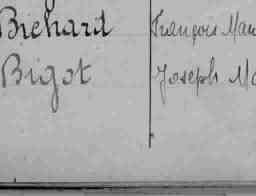 Brehard François Mau
Bigot Joseph Ma